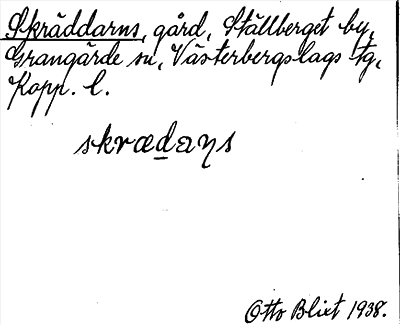 Skräddarns, gård, Ställberget by,
Grangärde sn, Västerbergslags tg,
Kopp. l.
skrædaɳs
Otto Blixt 1938.